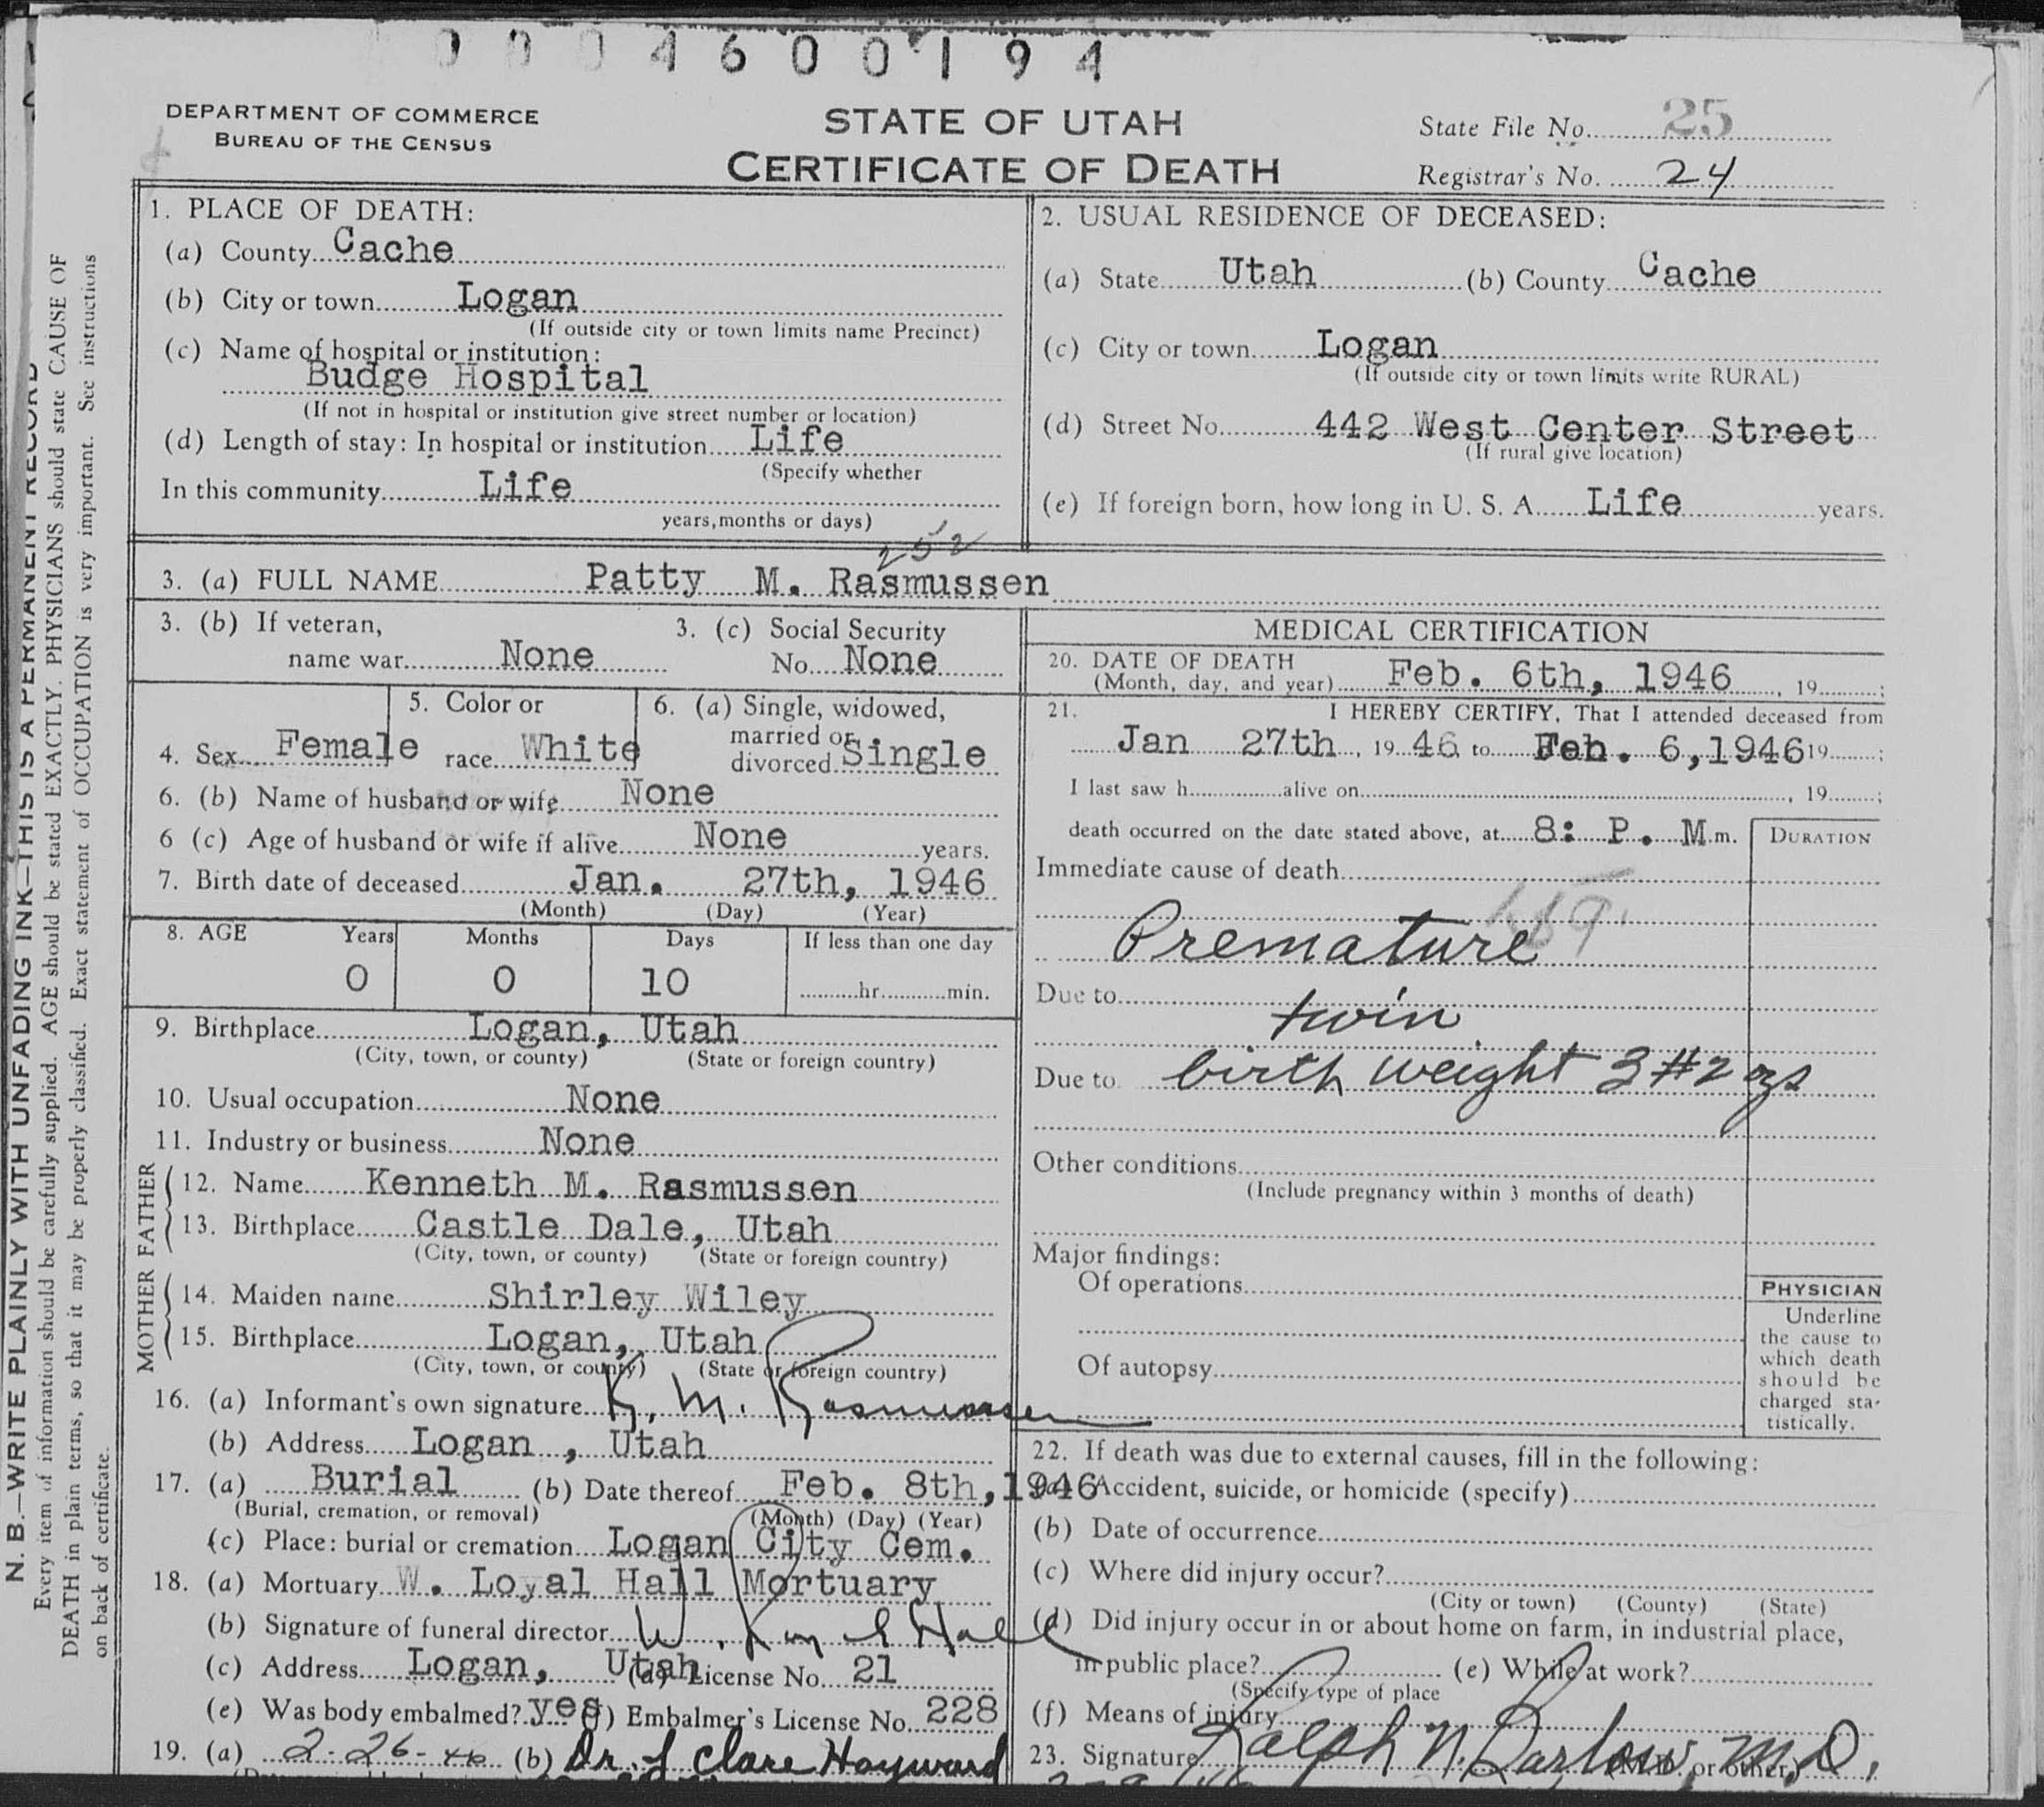 0004600194
DEPARTMENT OF COMMERCE
BUREAU OF THE CENSUS
STATE OF UTAH
CERTIFICATE OF DEATH
State File No. 25
Registrar's No. 24
N. B.—WRITE PLAINLY WITH UNFADING INK—THIS IS A PERMANENT RECORD
Every item of information should be carefully supplied. AGE should be stated EXACTLY. PHYSICIANS should state CAUSE OF
DEATH in plain terms, so that it may be properly classified. Exact statement of OCCUPATION is very important. See instructions
on back of certificate.
1. PLACE OF DEATH:
(a) County Cache
(b) City or town Logan
(If outside city or town limits name Precinct)
(c) Name of hospital or institution:
Budge Hospital
(If not in hospital or institution give street number or location)
(d) Length of stay: In hospital or institution Life
(Specify whether
In this community Life
years, months or days)
2. USUAL RESIDENCE OF DECEASED:
(a) State Utah (b) County Cache
(c) City or town Logan
(If outside city or town limits write RURAL)
(d) Street No. 442 West Center Street
(If rural give location)
(e) If foreign born, how long in U. S. A. Life years.
252
3. (a) FULL NAME Patty M. Rasmussen
3. (b) If veteran,
name war None
3. (c) Social Security
No. None
4. Sex Female
5. Color or
race White
6. (a) Single, widowed,
married or
divorced Single
6. (b) Name of husband or wife None
6 (c) Age of husband or wife if alive None years.
7. Birth date of deceased Jan. 27th, 1946
(Month) (Day) (Year)
8. AGE Years Months Days If less than one day
0 0 10 hr. min.
9. Birthplace Logan, Utah
(City, town, or county) (State or foreign country)
10. Usual occupation None
11. Industry or business None
FATHER
12. Name Kenneth M. Rasmussen
13. Birthplace Castle Dale, Utah
(City, town, or county) (State or foreign country)
MOTHER
14. Maiden name Shirley Wiley
15. Birthplace Logan, Utah
(City, town, or county) (State or foreign country)
16. (a) Informant's own signature K. M. Rasmussen
(b) Address Logan , Utah
17. (a) Burial (b) Date thereof Feb. 8th, 1946
(Burial, cremation, or removal) (Month) (Day) (Year)
(c) Place: burial or cremation Logan City Cem.
18. (a) Mortuary W. Loyal Hall Mortuary
(b) Signature of funeral director W. Loyal Hall
(c) Address Logan, Utah (d) License No. 21
(e) Was body embalmed? yes (f) Embalmer's License No. 228
19. (a) 2-26-46 (b) Dr. J Clare Hayward
MEDICAL CERTIFICATION
20. DATE OF DEATH
(Month, day, and year) Feb. 6th, 1946 , 19 ;
21. I HEREBY CERTIFY, That I attended deceased from
Jan 27th , 19 46 to Feb. 6,1946 19 ;
I last saw h alive on , 19 ;
death occurred on the date stated above, at 8: P. M.m.
DURATION
Immediate cause of death
159
Premature
Due to
twin
Due to birth weight 3 #2 ozs
Other conditions
(Include pregnancy within 3 months of death)
Major findings:
Of operations
Of autopsy
PHYSICIAN
Underline
the cause to
which death
should be
charged sta-
tistically.
22. If death was due to external causes, fill in the following:
(a) Accident, suicide, or homicide (specify)
(b) Date of occurrence
(c) Where did injury occur?
(City or town) (County) (State)
(d) Did injury occur in or about home on farm, in industrial place,
in public place? (e) While at work?
(Specify type of place
(f) Means of injury
23. Signature Ralph N. Barlow, M.D. (M.D. or other)